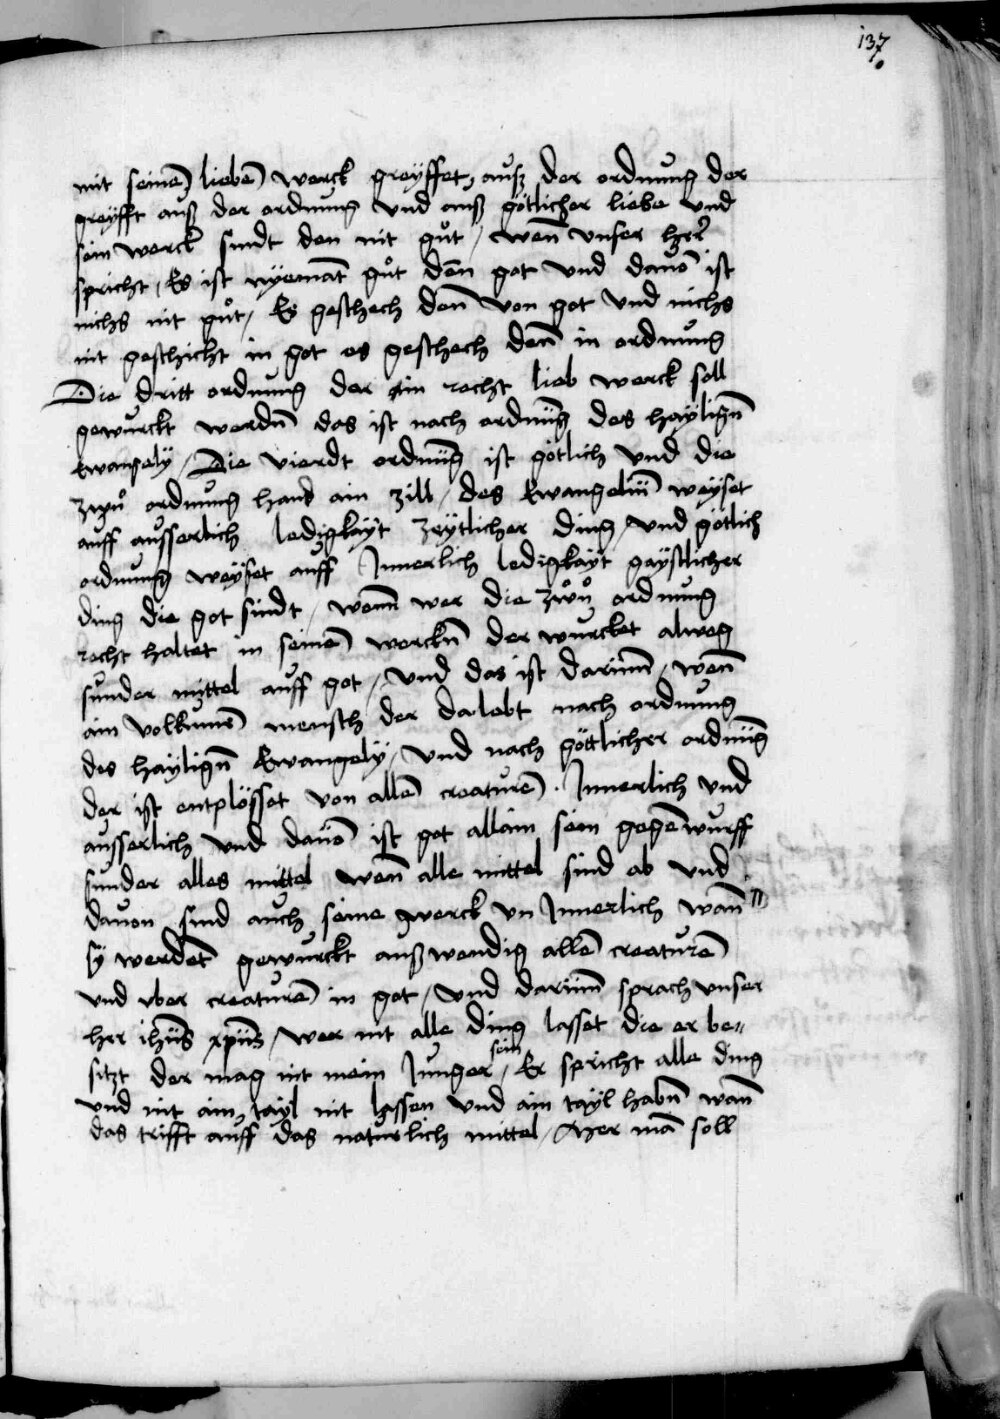 137
mit seinē liebē werck greyffet, auß der ordnung der
greyfft auß der ordnung vnd auß götlicher liebe vnd
sein werck sindt den nit gůt / wen̄ vnser herr
spricht / Es ist nyemāt gůt den̄ got vnd dauō ist
nichs nit gůt / Es geschech den̄ von got vnd nichs
nit geschicht in got es geschech den̄ in ordnung
Die dritt ordnung der ain recht lieb werck soll
gewurckt werdn̄ das ist nach ordnūg des haylign̄
ewangely / Die vierdt ordnūg ist götlich vnd die
zwů ordnung hand ain zill / des Ewangeliū weyset
auff ausserlich ledigkayt zeytlicher ding / vnd götlich
ordnung weyset auff Innerlich ledigkayt gaystlicher
ding die got sindt / wann wer die zwů ordnung
recht haltet in seinē werckn̄ der wurcket alweg
sunder mittel auff got / vnd das ist darūm / wen̄
ain volkumē mensch der da lebt nach ordnung
des haylign̄ Ewangely / vnd nach göttlicher ordnūg
der ist entplösset von allē creaturē . Innerlich vnd
ausserlich vnd dauō ist got allain sein gegēwurff
sunder alles mittel wen̄ alle mittel sind ab vnd
dauon sind auch seine werck vn Innerlich wan̄ //
sy werdēt gewurckt außwendig allē creaturē
vnd vber creaturē in got / vnd darūm sprach vnser
her ihūs xpūs / wer nit alle ding lasset die er be//
sitzt der mag nit mein Junger sein / Er spricht alle ding
vnd nit ain tayl nit lassen vnd ain tayl habn̄ wan̄
das trifft auff das naturlich mittel / Aber mā soll